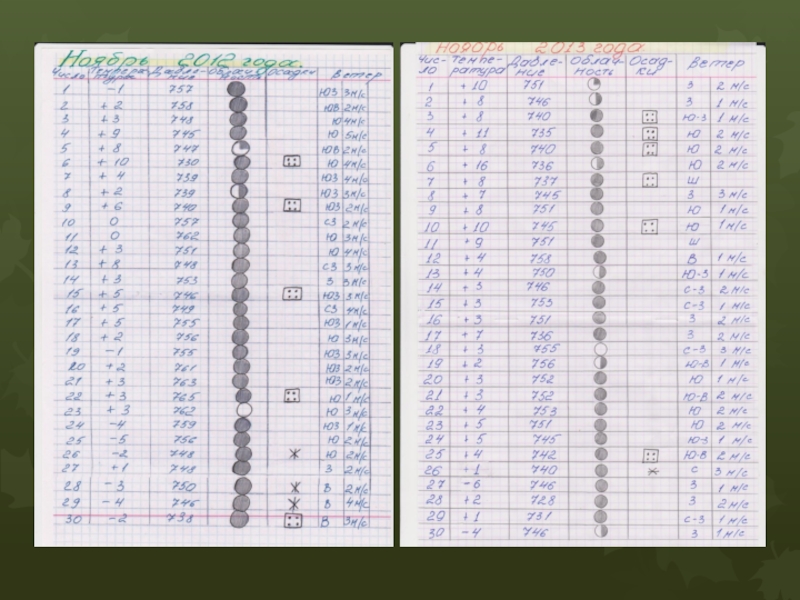 Ноябрь 2012 года.
Число Температура Давление Облачность Осадки Ветер
1 -1 757 ЮЗ 3м/с
2 +2 758 ЮВ 2м/с
3 +3 748 Ю 4м/с
4 +9 745 Ю 5м/с
5 +8 747 ЮВ 2м/с
6 +10 730 Ю 4м/с
7 +4 739 ЮЗ 4м/с
8 +2 739 ЮЗ 3м/с
9 +6 740 ЮЗ 2м/с
10 0 757 СЗ 2м/с
11 0 762 Ю 3м/с
12 +3 751 Ю 4м/с
13 +8 748 СЗ 3м/с
14 +3 753 З 3м/с
15 +5 746 ЮЗ 3м/с
16 +5 749 СЗ 4м/с
17 +5 755 ЮЗ 1м/с
18 +2 756 Ю 3м/с
19 -1 755 ЮЗ 3м/с
20 +2 761 ЮЗ 2м/с
21 +3 763 ЮЗ 2м/с
22 +3 765 Ю 1м/с
23 +3 762 Ю 3м/с
24 -4 759 ЮЗ 1м/с
25 -5 756 Ю 2м/с
26 -2 748 Ю 2м/с
27 +1 748 З 2м/с
28 -3 750 В 2м/с
29 -4 746 В 4м/с
30 -2 738 В 3м/с
Ноябрь 2013 года
Чис- Темпе- Давле- Облач- Осад- Ветер
ло ратура ние ность ки
1 +10 751 З 2 м/с
2 +8 746 З 1 м/с
3 +8 740 Ю-З 1 м/с
4 +11 735 Ю 2 м/с
5 +8 740 Ю 2 м/с
6 +16 736 Ю 2 м/с
7 +8 737 Ш
8 +7 745 З 3 м/с
9 +8 751 Ю 1 м/с
10 +10 745 Ю 1 м/с
11 +9 751 Ш
12 +4 758 В 1 м/с
13 +4 750 Ю-З 1 м/с
14 +3 746 С-З 2 м/с
15 +3 753 С-З 1 м/с
16 +3 751 З 2 м/с
17 +7 736 З 2 м/с
18 +3 755 С-З 3 м/с
19 +2 756 Ю-В 1 м/с
20 +3 752 Ю 1 м/с
21 +3 752 Ю-В 2 м/с
22 +4 753 Ю 2 м/с
23 +5 751 Ю 2 м/с
24 +5 745 Ю-З 1 м/с
25 +4 742 Ю-В 2 м/с
26 +1 740 С 3 м/с
27 -6 746 З 1 м/с
28 +2 728 З 2 м/с
29 +1 731 С-З 1 м/с
30 -4 746 З 1 м/с